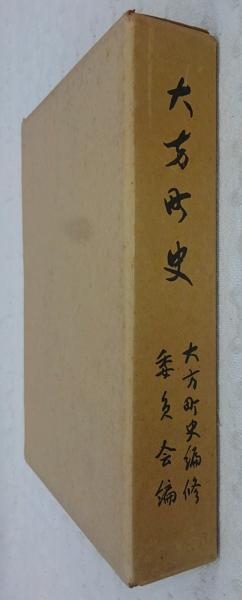 大方町史
大方町史編修
委員会編